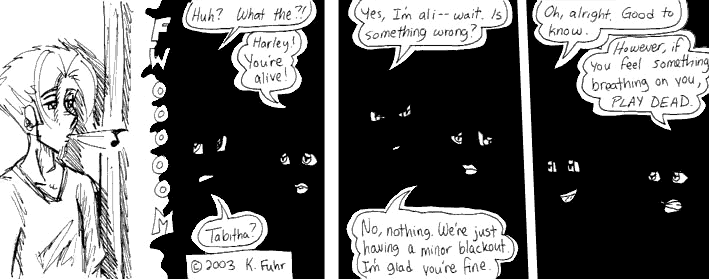 FWOOOOOM
Huh? What the?!
Harley!
You're
alive!
Tabitha?
© 2003 K. Fuhr
Yes, I'm ali-- wait. Is
something wrong?
No, nothing. We're just
having a minor blackout.
I'm glad you're fine.
Oh, alright. Good to
know.
However, if
you feel something
breathing on you,
PLAY DEAD.